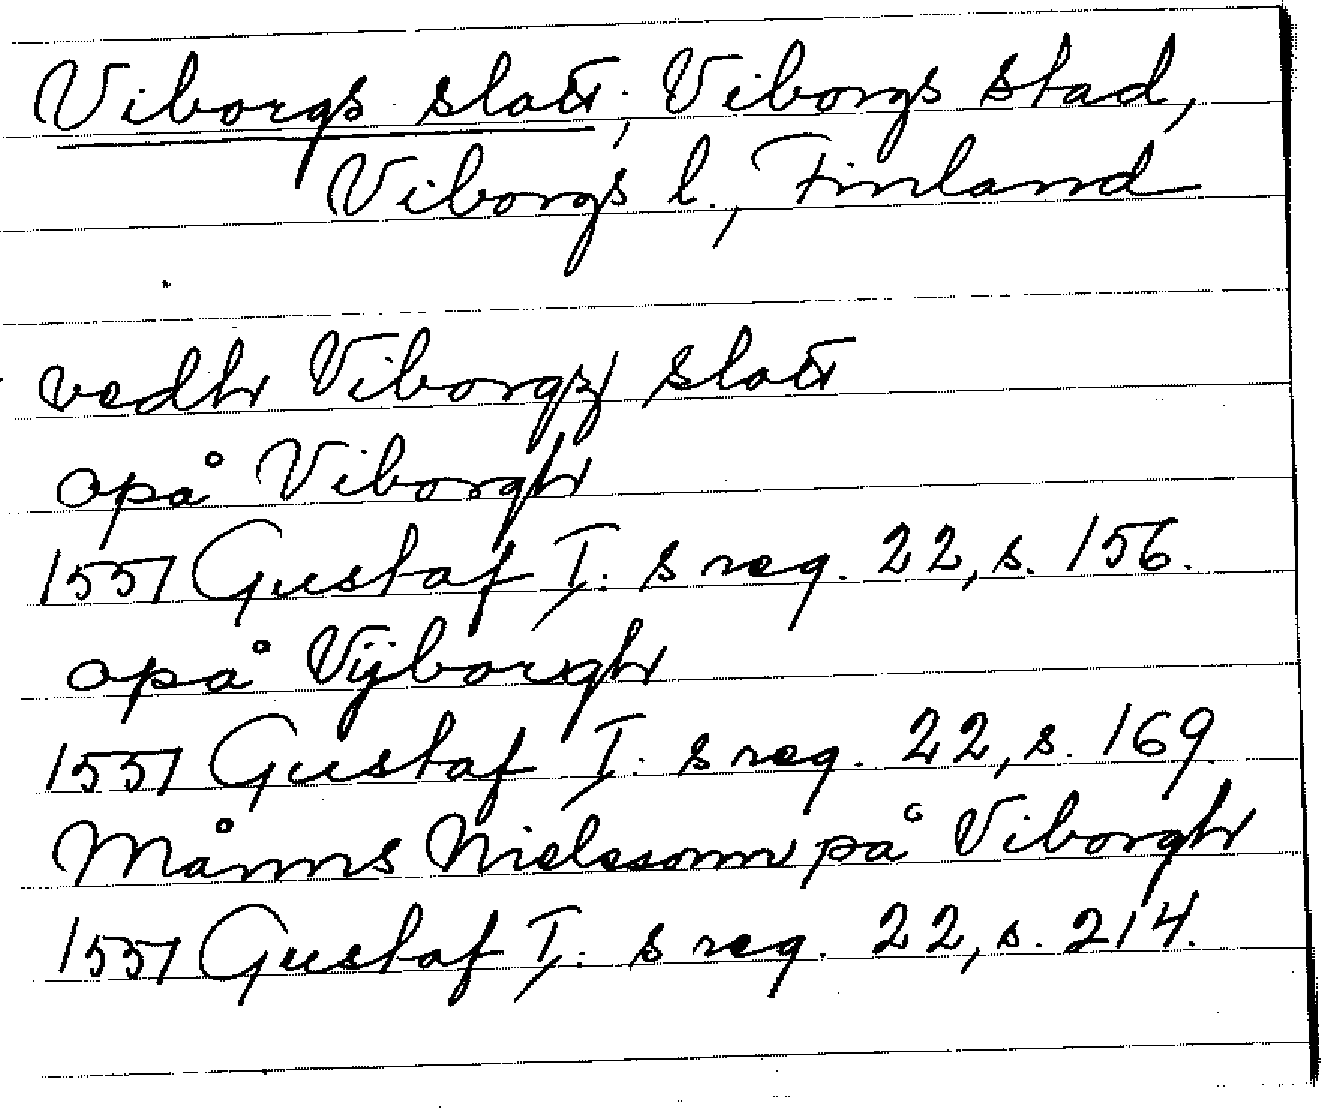 Viborgs slott, Viborgs stad,
Viborgs l., Finland
vedh Viborgz slott
opå Viborgh
1557 Gustaf I:s reg. 22, s. 156.
opå Vijborgh
1557 Gustaf I:s reg. 22, s. 169.
Måns Nielssonn på Viborgh
1557 Gustaf I:s reg. 22, s. 214.